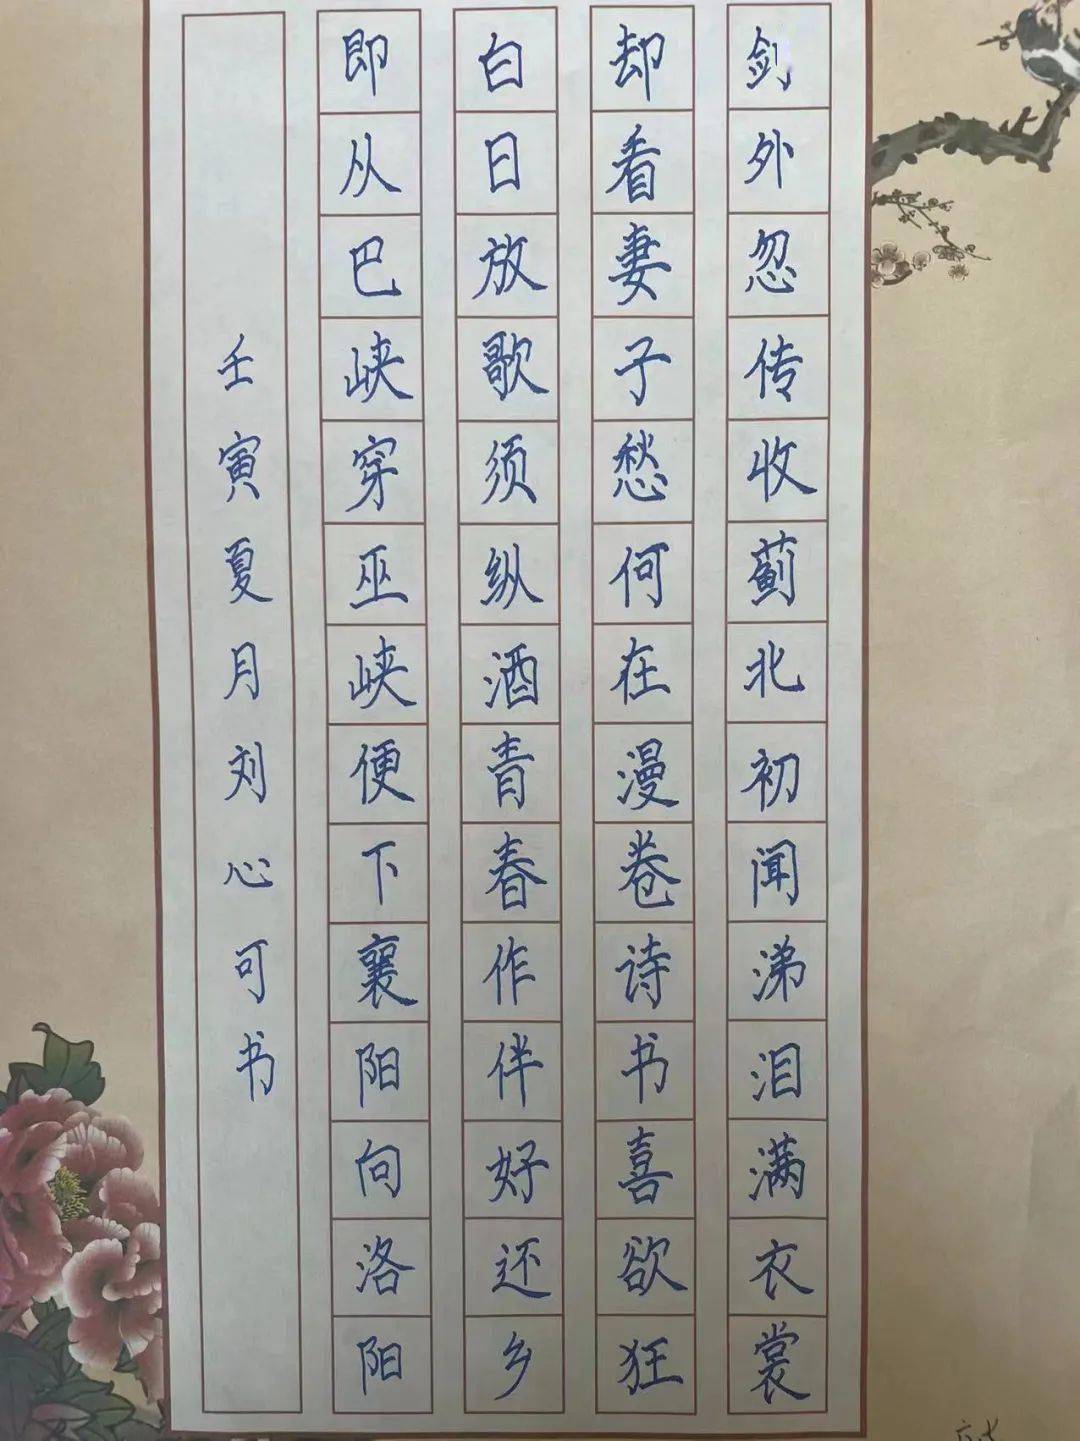 剑外忽传收蓟北初闻涕泪满衣裳
却看妻子愁何在漫卷诗书喜欲狂
白日放歌须纵酒青春作伴好还乡
即从巴峡穿巫峡便下襄阳向洛阳
壬寅夏月刘心可书